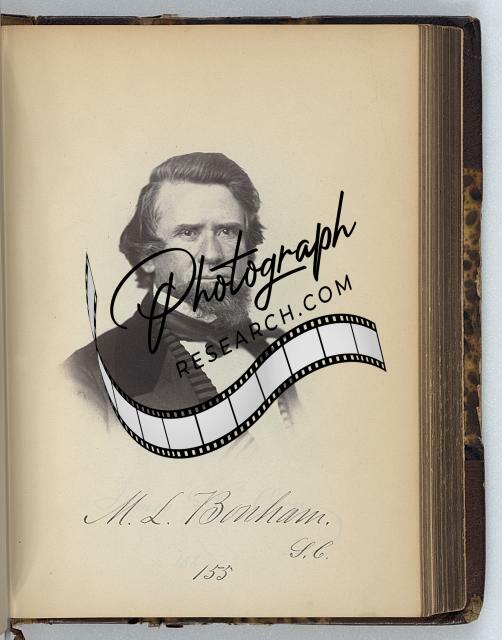 Photograph
RESEARCH.COM
M. L. Bonham.
S.C.
155